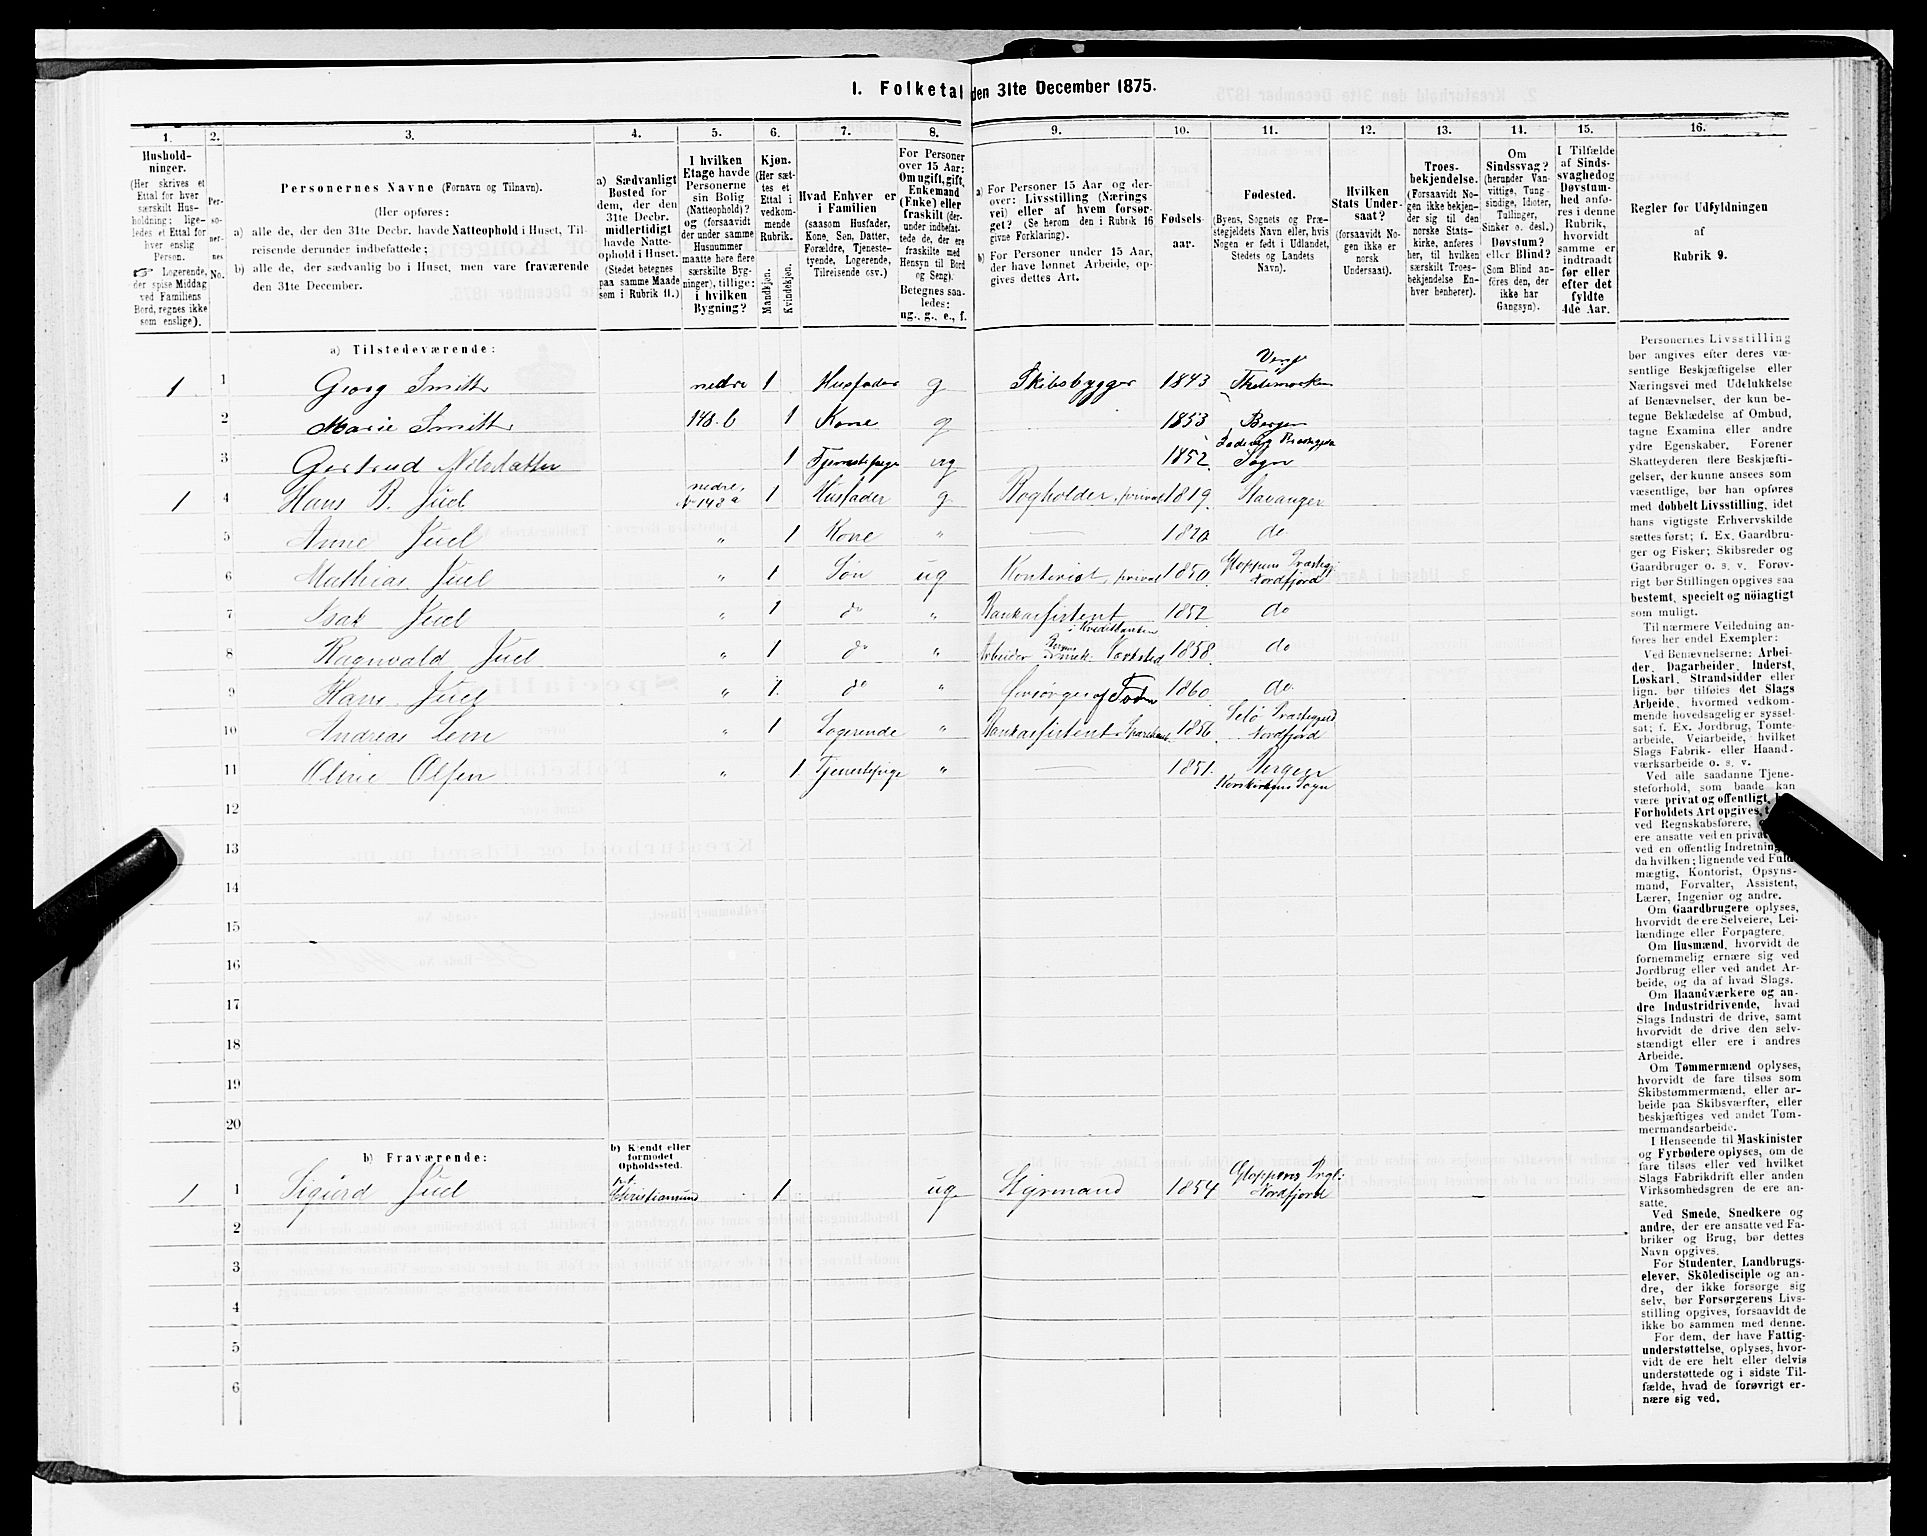 1. Folketal den 31te December 1875.
1. 2. 3. 4. 5. 6. 7. 8. 9. 10. 11. 12. 13. 14. 15. 16.
Husholdninger.
(Her skrives et
Ettal for hver
særskilt Husholdning;
ligeledes
et Ettal for
hver enslig
Person.
☞ Logerende,
der spise Middag
ved Familiens
Bord, regnes ikke
som enslige).
Personernes
No.
Personernes Navne (Fornavn og Tilnavn).
(Her opføres:
a) alle de, der den 31te Decbr. havde Natteophold i Huset, Tilreisende
derunder indbefattede;
b) alle de, der sædvanlig bo i Huset, men vare fraværende
den 31te December.
a) Sædvanligt
Bosted for
dem, der den
31te Decbr.
midlertidigt
havde Natteophold
i Huset.
(Stedet betegnes
paa samme Maade
som i Rubrik 11.)
I hvilken
Etage havde
Personerne
sin Bolig
(Natteophold)?
og (forsaavidt
der under samme
Husnummer
maatte høre flere
særskilte Bygninger),
tillige:
i hvilken
Bygning?
Kjøn.
(Her sættes
et
Ettal i
vedkommende
Rubrik.
Mandkjøn.
Kvindekjøn.
Hvad Enhver er
i Familien
(saasom Husfader,
Kone, Søn, Datter,
Forældre, Tjenestetyende,
Logerende,
Tilreisende osv.)
For Personer
over 15 Aar:
Om ugift, gift,
Enkemand
(Enke) eller
fraskilt (derunder
indbefattede
de, der ere
fraskilte med
Hensyn til Bord
og Seng).
Betegnes saaledes:
ug., g., e., f.
a) For Personer 15 Aar og derover:
Livsstilling (Næringsvei)
eller af hvem forsørget?
(Se herom den i Rubrik 16
givne Forklaring).
b) For Personer under 15 Aar,
der have lønnet Arbeide, opgives
dettes Art.
Fødselsaar.
Fødested.
(Byens, Sognets og Præstegjeldets
Navn eller, hvis
Nogen er født i Udlandet,
Stedets og Landets
Navn).
Hvilken
Stats Undersaat?
(forsaavidt Nogen
ikke er
norsk
Undersaat).
Troesbekjendelse.
(Forsaavidt Nogen
ikke bekjender
sig til den
norske Statskirke,
anføres
her, til hvilken
særskilt Troesbekjendelse
Enhver
henhører).
Om
Sindssvag?
(herunder Vanvittige,
Tungsindige,
Idioter,
Tullinger,
Sinker o. desl.)
Døvstum?
eller Blind?
(Som Blind anføres
den, der
ikke har
Gangsyn).
I Tilfælde
af Sindssvaghed
og
Døvstumhed
anføres
i denne
Rubrik,
hvorvidt
samme er
indtraadt
før eller
efter det
fyldte
4de Aar.
Regler for Udfyldningen
af
Rubrik 9.
a) Tilstedeværende:
1 1 Georg Smith nedre 1 Husfader g Skibsbygger 1843 Thelemarken
2 Marie Smith 148.b 1 Kone g 1853 Bergen
3 Gertrud Nilsdatter 1 Tjenestepige ug 1852 Sogn
1 4 Hans B. Juel nedre, No 148a 1 Husfader g Bogholder, privat 1819. Stavanger
5 Anne Juel " 1 Kone " — 1820 do
6 Mathias Juel " 1 Søn ug Kontorist, privat 1850. Gloppens Præstegj. Nordfjord
7 Isak Juel " 1 do " Bankassistent i Kreditbanken 1852. do
8 Ragnvald Juel " 1 do " Arbeider mek. Værksted 1858. do
9 Hans Juel " 1 do " forsørges af Faderen 1860. do.
10 Andreas Lem " 1 Logerende " Bankassistent Sparebank. 1856. Selø Præstegjeld Nordfjord
11 Oline Olsen " 1 Tjenestepige " — 1851. Bergen Korskirkens Sogn
12
13
14
15
16
17
18
19
20
b) Fraværende:
b) Kjendt eller
formodet
Opholdssted.
1 1 Sigurd Juel Christiansund 1 ug Styrmand 1854 Gloppens Prgl. Nordfjord
2
3
4
5
6
Personernes Livsstilling
bør angives efter deres væsentlige
Beskjæftigelse eller
Næringsvei med Udelukkelse
af Benævnelser, der kun betegne
Beklædelse af Ombud,
tagne Examina eller andre
ydre Egenskaber. Forener
Skatteyderen flere Beskjæftigelser,
der kunne ansees som
væsentlige, bør han opføres
med dobbelt Livsstilling, idet
hans vigtigste Erhvervskilde
sættes først; f. Ex. Gaardbruger
og Fisker; Skibsreder og
Gaardbruger o. s. v. Forøvrigt
bør Stillingen opgives saa
bestemt, specielt og nöiagtigt
som muligt.
Til nærmere Veiledning anføres
her endel Exempler:
Ved Benævnelserne: Arbeider,
Dagarbeider, Inderst,
Løskarl, Strandsidder eller
lign. bør tilføies det Slags
Arbeide, hvormed vedkommende
hovedsagelig er sysselsat;
f. Ex. Jordbrug, Tomtearbeide,
Veiarbeide, hvilket
Slags Fabrik- eller Haandværksarbeide
o. s. v.
Ved alle saadanne Tjenesteforhold,
som baade kan
være privat og offentligt,
Forholdets Art opgives,
ved Regnskabsførere,
ere ansatte ved en privat
ved en offentlig Indretning
da hvilken; lignende ved Fuldmægtig,
Kontorist, Opsynsmand,
Forvalter, Assistent,
Lærer, Ingeniør og andre.
Om Gaardbrugere oplyses,
hvorvidt de ere Selveiere, Leilændinge
eller Forpagtere.
Om Husmænd, hvorvidt de
fornemmelig ernære sig ved
Jordbrug eller ved andet Arbeide,
og da af hvad Slags.
Om Haandværkere og andre
Industridrivende, hvad
Slags Industri de drive, samt
hvorvidt de drive den selvstændigt
eller ere i andres
Arbeide.
Om Tømmermænd oplyses,
hvorvidt de fare tilsøs som
Skibstømmermænd, eller arbeide
paa Skibsværfter, eller
beskjæftiges ved andet Tømmermandsarbeide.
I Henseende til Maskinister
og Fyrbødere oplyses, om de
fare tilsøs eller ved hvilket
Slags Fabrikdrift eller anden
Virksomhedsgren de ere ansatte.
Ved Smede, Snedkere og
andre, der ere ansatte ved Fabriker
og Brug, bør dettes
Navn opgives.
For Studenter, Landbrugselever,
Skoledisciple og andre,
der ikke forsørge sig
selv, bør Forsørgerens Livsstilling
opgives, forsaavidt de
ikke bo sammen med denne.
For dem, der have Fattigunderstøttelse,
oplyses, hvorvidt
de ere helt eller delvis
understøttede og i sidste Tilfælde,
hvad de forøvrigt ernære
sig ved.